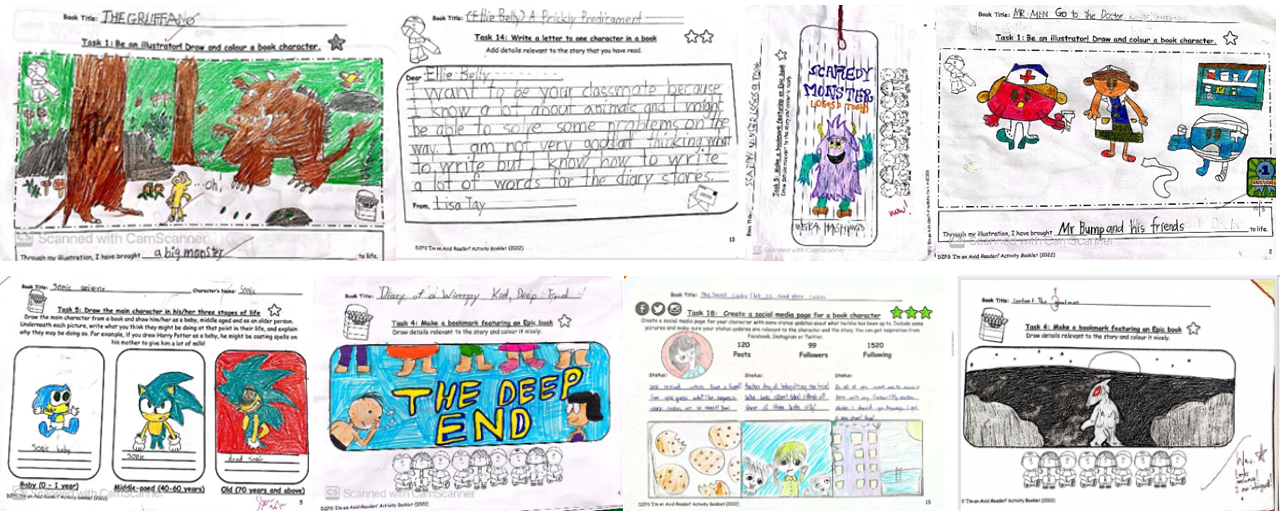 Book Title: THE GRUFFALO
Task 1: Be an illustrator! Draw and colour a book character.
oh,
CS Scanned with CamScanner
Through my illustration, I have brought a big monster to life.
DZPS 'I'm an Avid Reader!' Activity Booklet (2022)
Book Title: (Ellie Belly) A Prickly Predicament
Task 14: Write a letter to one character in a book
Add details relevant to the story that you have read.
Dear Ellie Belly
I want to be your classmate because
I know a lot about animals and I might
be able to solve some problems on the
way. I am not very good at thinking what
to write but I know how to write
a lot of words for the diary stories.
From, Lisa Tay
DZPS 'I'm an Avid Reader!' Activity Booklet (2022)
13
Task 4: Make a bookmark featuring an Epic book
SCAREDY
MONSTER
LOSES A TOOTH
Book Title: MR MEN Go to the Doctor
Task 1: Be an illustrator! Draw and colour a book character.
#1
AWESOME
CS Scanned with CamScanner
Through my illustration, I have brought Mr Bump and his friends to life.
DZPS 'I'm an Avid Reader!' Activity Booklet (2022)
2
Book Title: Sonic universe Character's Name: Sonic
Task 5: Draw the main character in his/her three stages of life
Draw the main character from a book and show him/her as a baby, middle aged and as an older person.
Underneath each picture, write what you think they might be doing at that point in their life, and explain
why they may be doing so. For example, if you drew Harry Potter as a baby, he might be casting spells on
his mother to give him a lot of milk!
Sonic baby
Sonic
dead Sonic
Baby (0 - 1 year) Middle-aged (40-60 years) Old (70 years and above)
DZPS 'I'm an Avid Reader!' Activity Booklet (2022)
5
Book Title: Diary of a Wimpy Kid, Deep End
Task 4: Make a bookmark featuring an Epic book
Draw details relevant to the story and colour it nicely.
THE DEEP
END
CS Scanned with CamScanner
DZPS 'I'm an Avid Reader!' Activity Booklet (2022)
Book Title: The Secret Cookie Club
Task 18: Create a social media page for a book character
Create a social media page for your character with some status updates about what he/she has been up to. Include some
pictures and make sure your status updates are relevant to the character and the story. You can get inspiration from
Facebook, Instagram or Twitter.
120 99 1520
Posts Followers Following
Status: Status: Status:
DZPS 'I'm an Avid Reader!' Activity Booklet (2022)
15
Book Title:
Task 4: Make a bookmark featuring an Epic book
Draw details relevant to the story and colour it nicely.
DZPS 'I'm an Avid Reader!' Activity Booklet (2022)